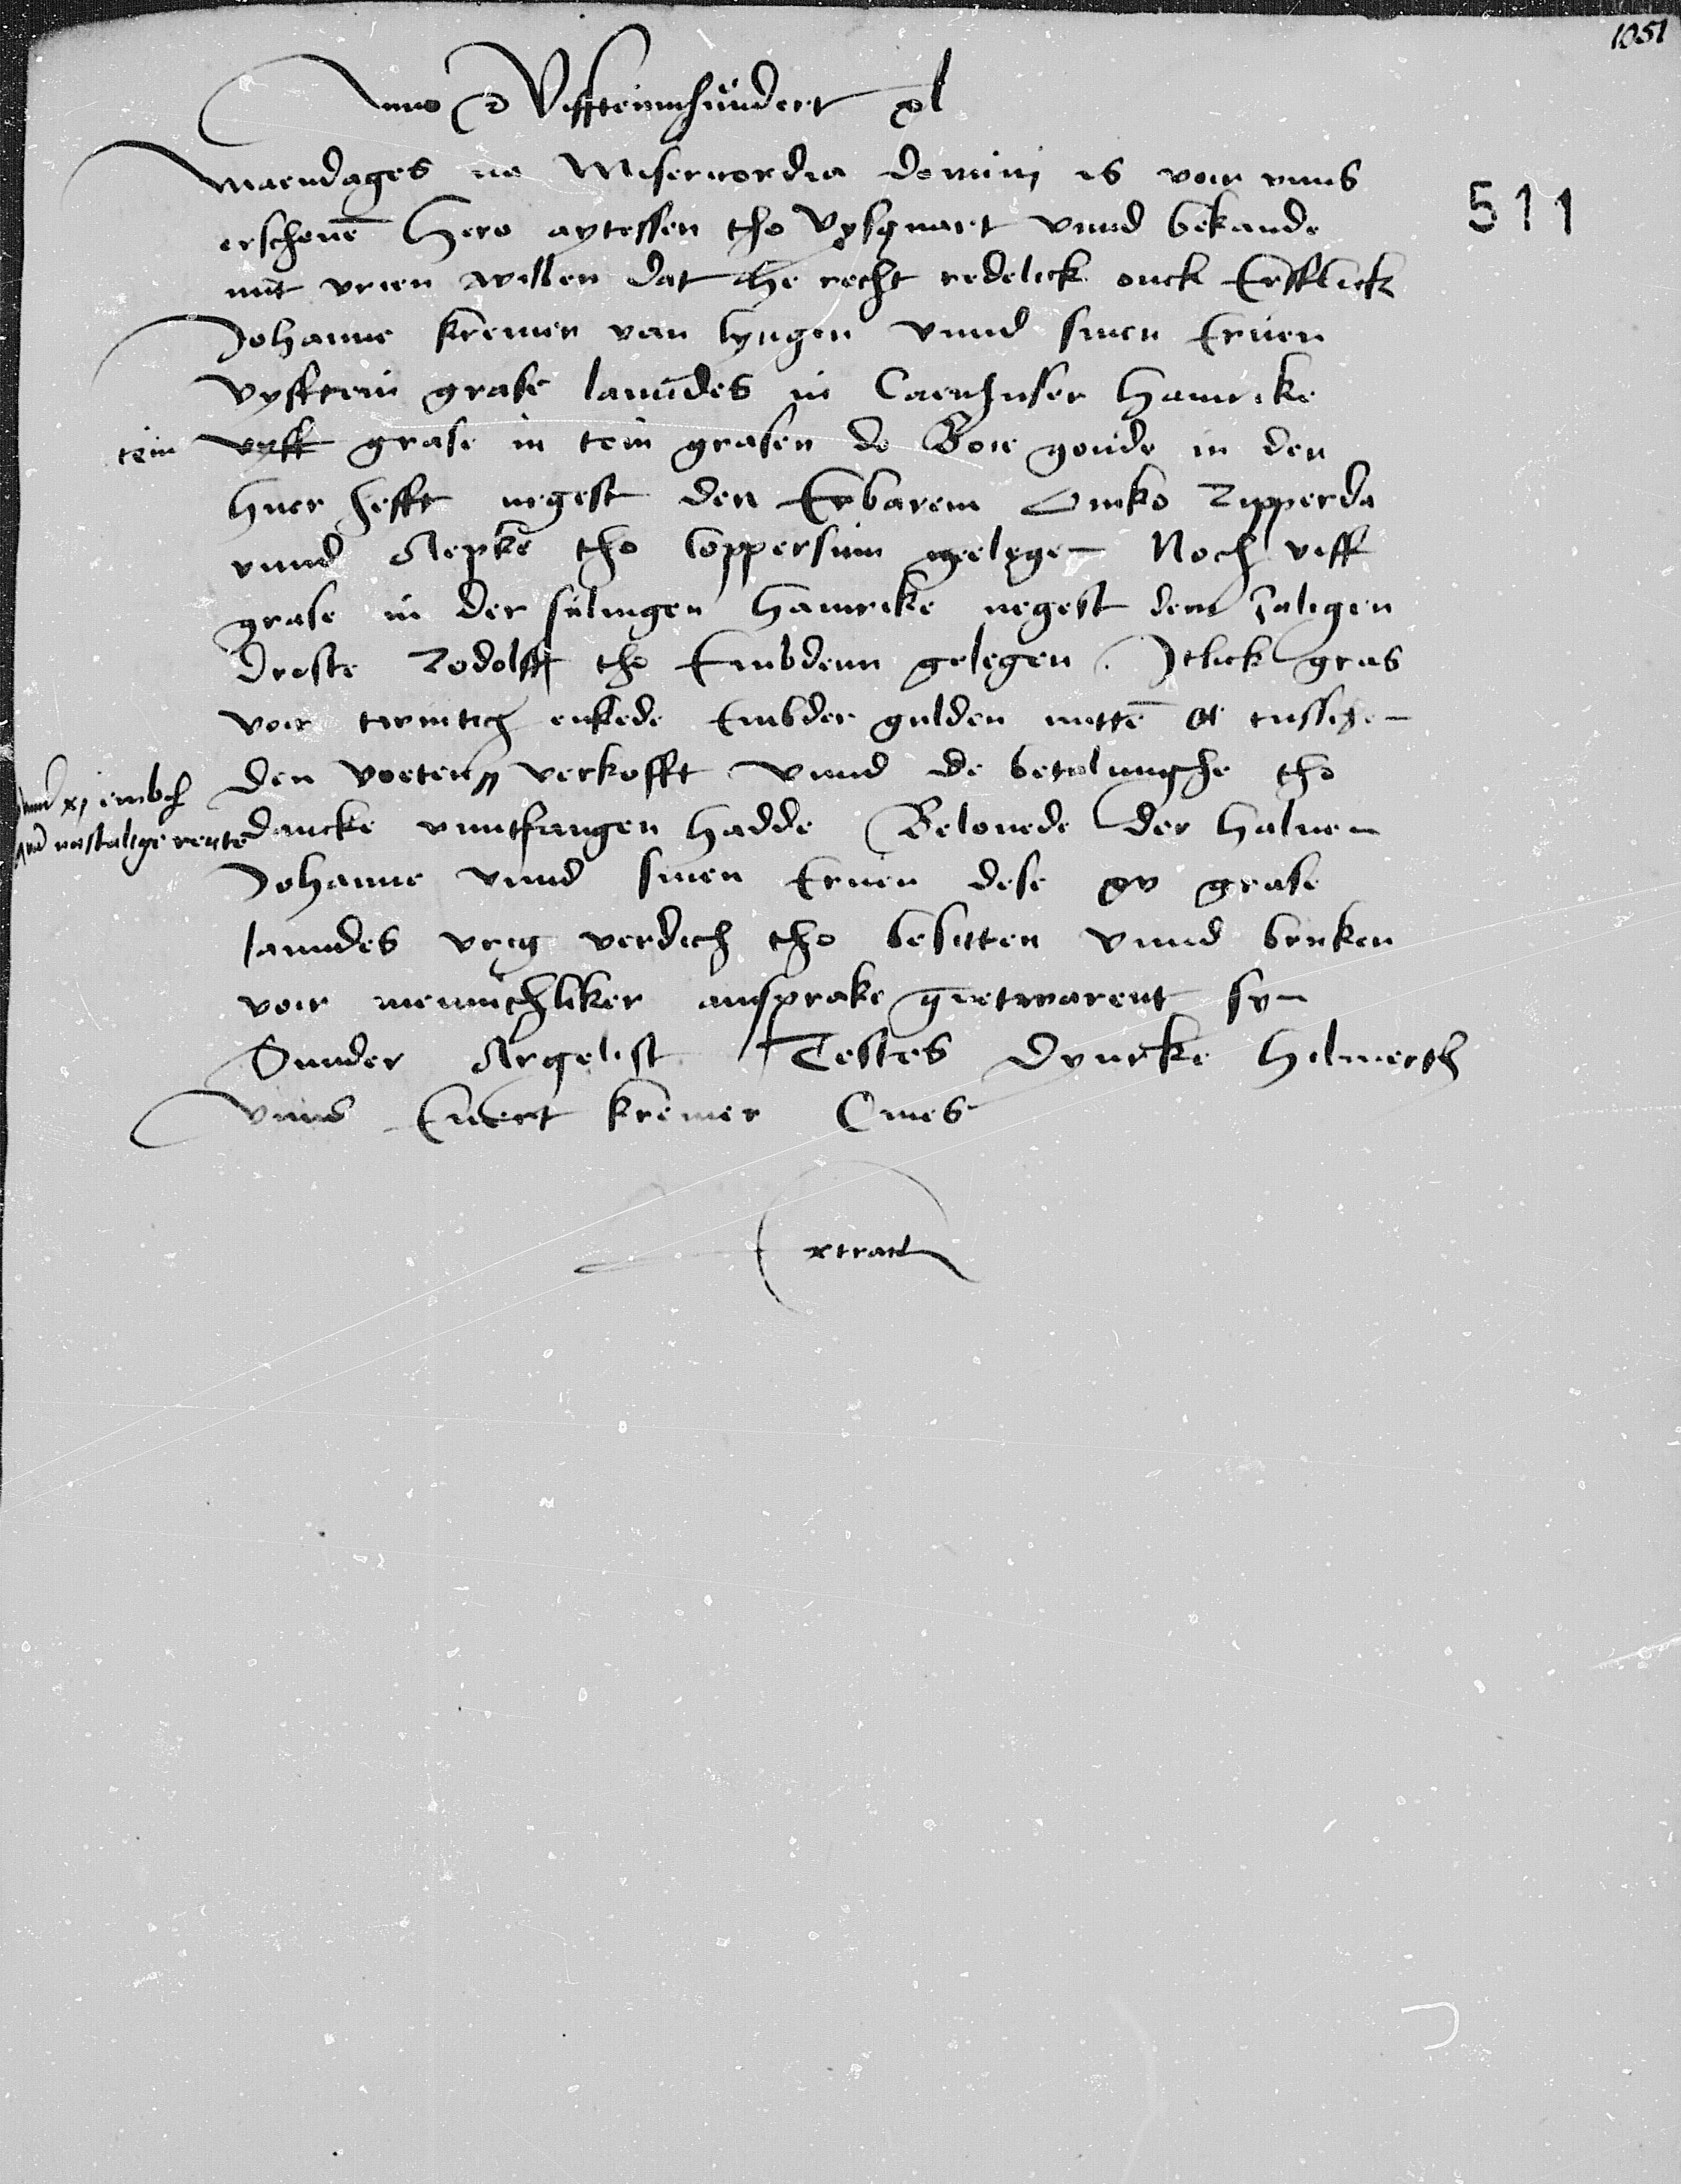 1051
Anno &c Vyffteinnhundert xl
Maendages na Misericordia domini is voir vnns
511
erschenē Hero aytessen tho Vysquart vnnd bekande
mit vrien willen dat he recht redelick ouck Erfflick
Johanne kremer van lyngen vnnd sinen Eruen
vyfftein grase lanndes in Caenhuser hamrike
tein vyff grase in tein grasen de Boie gonde in den
huer hefft negest den Erbarem Omko Ripperda
vnnd Aepke tho loppersum gelegen Noch viff
grase in der sulingen hamrike negest dem zaligen
Droste Rodolff tho Embdenn gelegen. Itlick gras
voir twintich enkede Embder gulden mitte tussche
den voeten verkofft vnnd de betalunghe tho
vnnd xj embd
vnd nastalige rente
dancke vnntfangen hadde Belouede der haluen
Johanne vnnd sinen Eruen dese xv grase
lanndes vrig verdich tho besitten vnnd bruken
voir mennichliker ansprake guetwarent syn
Sunder Argelist Testes Dyurke hilmersch
vnnd Euert kremer Ciues
Extract